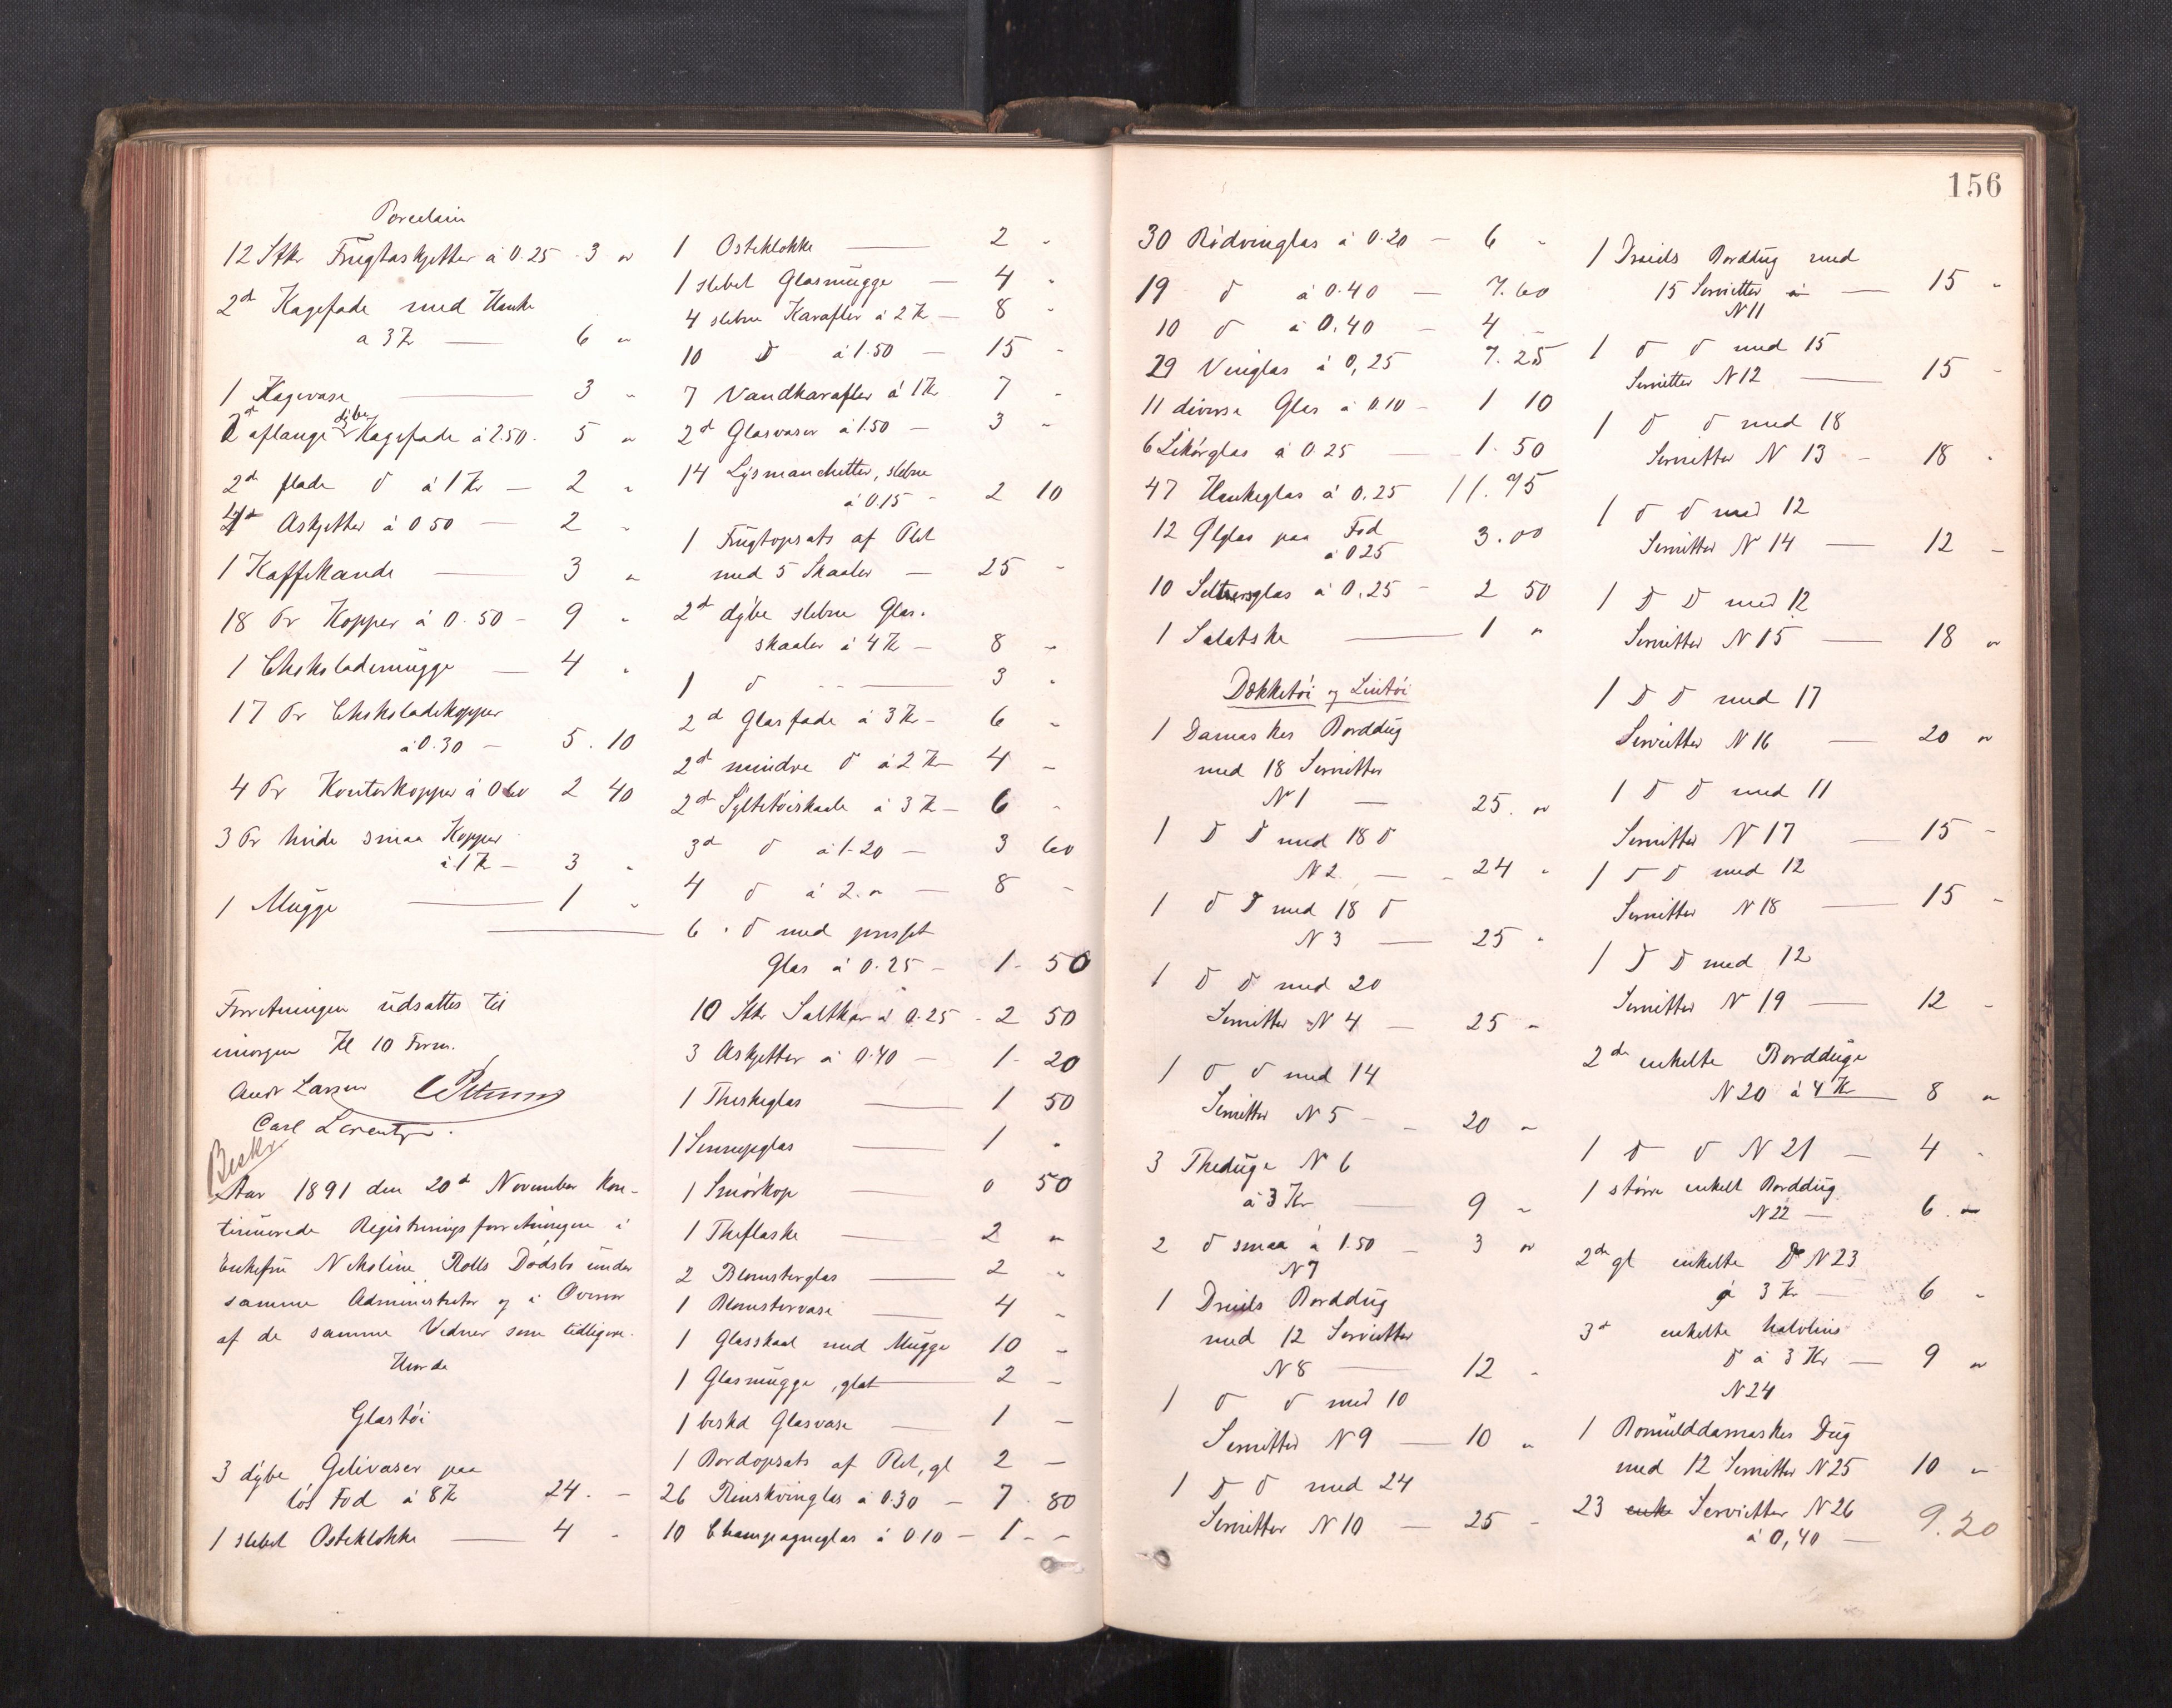 Porcelain
12 Stkr Frugtaskjetter à 0.25 - 3 "
2de Kagefade med Hanke
a 3 Kr — 6 "
1 Kagevase — 3 "
2de aflange dybe Kagefade à 2.50 - 5 "
2de flade do à 1 Kr — 2 "
4 Askjetter à 0 50 — 2 "
1 Kaffekande — 3 "
18 Pr Kopper à 0.50 - 9 "
1 Chokolademugge — 4 "
17 Pr Chokoladekopper
à 0.30 - 5.10
4 Pr Kontorkopper à 0 60 2 40
3 Pr hvide smaa Kopper
à 1 Kr — 3 "
1 Mugge — 1 "
Forretningen udsattes til
imorgen Kl 10 Form.
Andr Larsen
Carl Lorentzen.
Beskr
Aar 1891 den 20de November kon-
tinuerede Registreringsforretningen i
Enkefru Nikoline Rolls Dødsbo under
samme Administrator og i Overvær
af de samme Vidner som tidligere.
Hvorda
Glastøi
3 dybe Gelivaser paa
løs Fod à 8 Kr 24. -
1 slebet Osteklokke — 4 "
1 Osteklokke — 2 "
1 slebet Glasmugge — 4 "
4 slebne Karafler à 2 Kr — 8 "
10 do à 1.50 — 15 -
7 Vandkarafler à 1 Kr 7 -
2de Glasvaser à 1.50 — 3 "
14 Lysmanchetter, slebne
à 0.15 - 2 10
1 Frugtopsats af Plet
med 5 Skaaler — 25 -
2de dybe slebne Glas-
skaaler à 4 Kr — 8 "
1 do — 3 "
2de Glasfade à 3 Kr - 6 "
2de mindre do à 2 Kr 4 -
2de Syltetøiskaale à 3 Kr — 6 "
3de do à 1.20 — 3 60
4 do à 2. " — 8 -
6 do med presset
Glas à 0.25 - 1. 50
10 Stkr Saltkar à 0.25 - 2 50
3 Askjetter à 0.40 — 1 - 20
1 Theskeglas — 1 50
1 Sennepglas — 1 "
1 Smørkop — 0 50
1 Theflaske — 2 "
2 Blomsterglas — 2 "
1 Blomstervase — 4 -
1 Glasskaal med Mugge 10 -
1 Glasmugge, glat — 2 -
1 beskd Glasvase — 1 -
1 Bordopsats af Plet, gl 2 -
26 Rinskvinglas à 0.30 — 7.80
10 Champagneglas à 0 10 — 1 - -
156
30 Rødvinglas à 0.20 - 6 "
19 do à 0.40 — 7.60
10 do à 0.40 - 4 -
29 Vinglas à 0,25 7.25
11 diverse Glas à 0.10 - 1 10
6 Likørglas à 0.25 — 1.50
47 Hankeglas à 0.25 11.75
12 Ølglas paa Fod
à 0 25 3.00
10 Seltersglas à 0.25 - 2 50
1 Salatske — 1 "
Dækketøi og Lintøi
1 Damaskes Borddug
med 18 Servietter
N 1 — 25. "
1 do do med 18 do
N 2 — 24 "
1 do do med 18 do
N 3 — 25 "
1 do do med 20
Servietter N 4 — 25 "
1 do do med 14
Servietter N 5 - 20 "
3 Theduge N 6
à 3 Kr — 9 "
2 do smaa à 1.50 - 3 "
N 7
1 Dreils Borddug
med 12 Servietter
N 8 — 12 "
1 do do med 10
Servietter N 9 — 10 "
1 do do med 24
Servietter N 10 — 25 -
1 Dreils Borddug med
15 Servietter — 15 "
N 11
1 do do med 15
Servietter N 12 — 15 -
1 do do med 18
Servietter N 13 - 18 "
1 do do med 12
Servietter N 14 — 12 -
1 do do med 12
Servietter N 15 — 18 "
1 do do med 17
Servietter N 16 — 20 "
1 do do med 11
Servietter N 17 — 15 -
1 do do med 12
Servietter N 18 — 15 -
1 do do med 12
Servietter N 19 — 12 -
2de enkelte Bordduge
N 20 à 4 Kr 8 "
1 do do N 21 — 4 "
1 større enkelt Borddug
N 22 — 6 -
2de gl enkelte Do N 23
à 3 Kr — 6 "
3de enkelte halvlins
do à 3 Kr — 9 "
N 24
1 Bomulddamaskes Dug
med 12 Servietter N 25 10 "
23 enk Servietter N 26
à 0,40 — 9.20